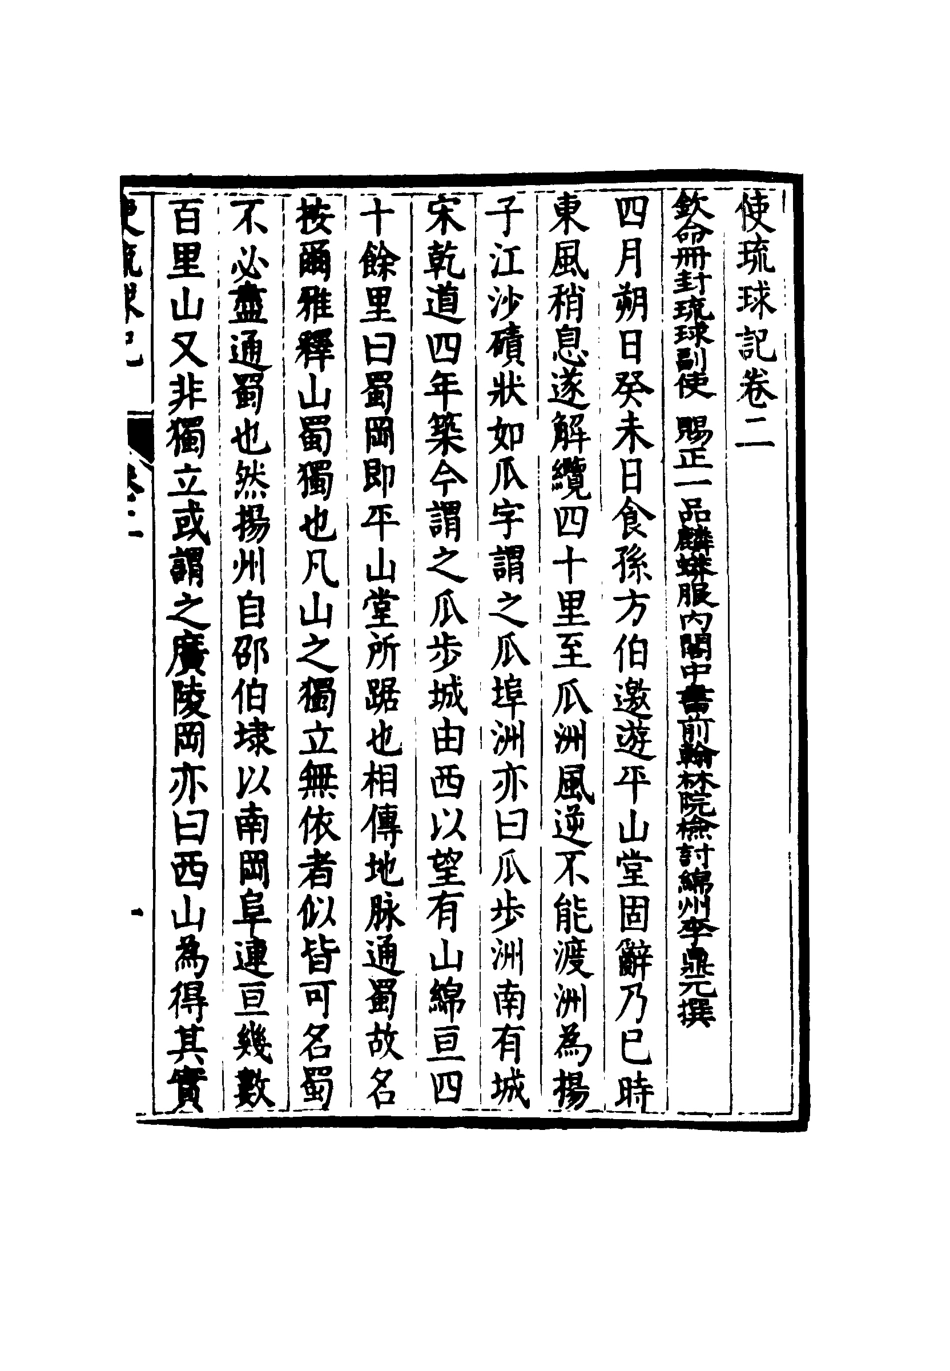 使琉球記卷二
欽命冊封琉球副使 賜正一品麟蟒服內閣中書前翰林院檢討綿州李鼎元撰
四月朔日癸未日食孫方伯邀遊平山堂固辭乃巳時
東風稍息遂解纜四十里至瓜洲風逆不能渡洲為揚
子江沙磧狀如瓜字謂之瓜埠洲亦曰瓜步洲南有城
宋乾道四年築今謂之瓜步城由西以望有山綿亘四
十餘里曰蜀岡即平山堂所踞也相傳地脉通蜀故名
按爾雅釋山蜀獨也凡山之獨立無依者似皆可名蜀
不必盡通蜀也然揚州自邵伯埭以南岡阜連亘幾數
百里山又非獨立或謂之廣陵岡亦曰西山為得其實
使琉球記 卷二 一